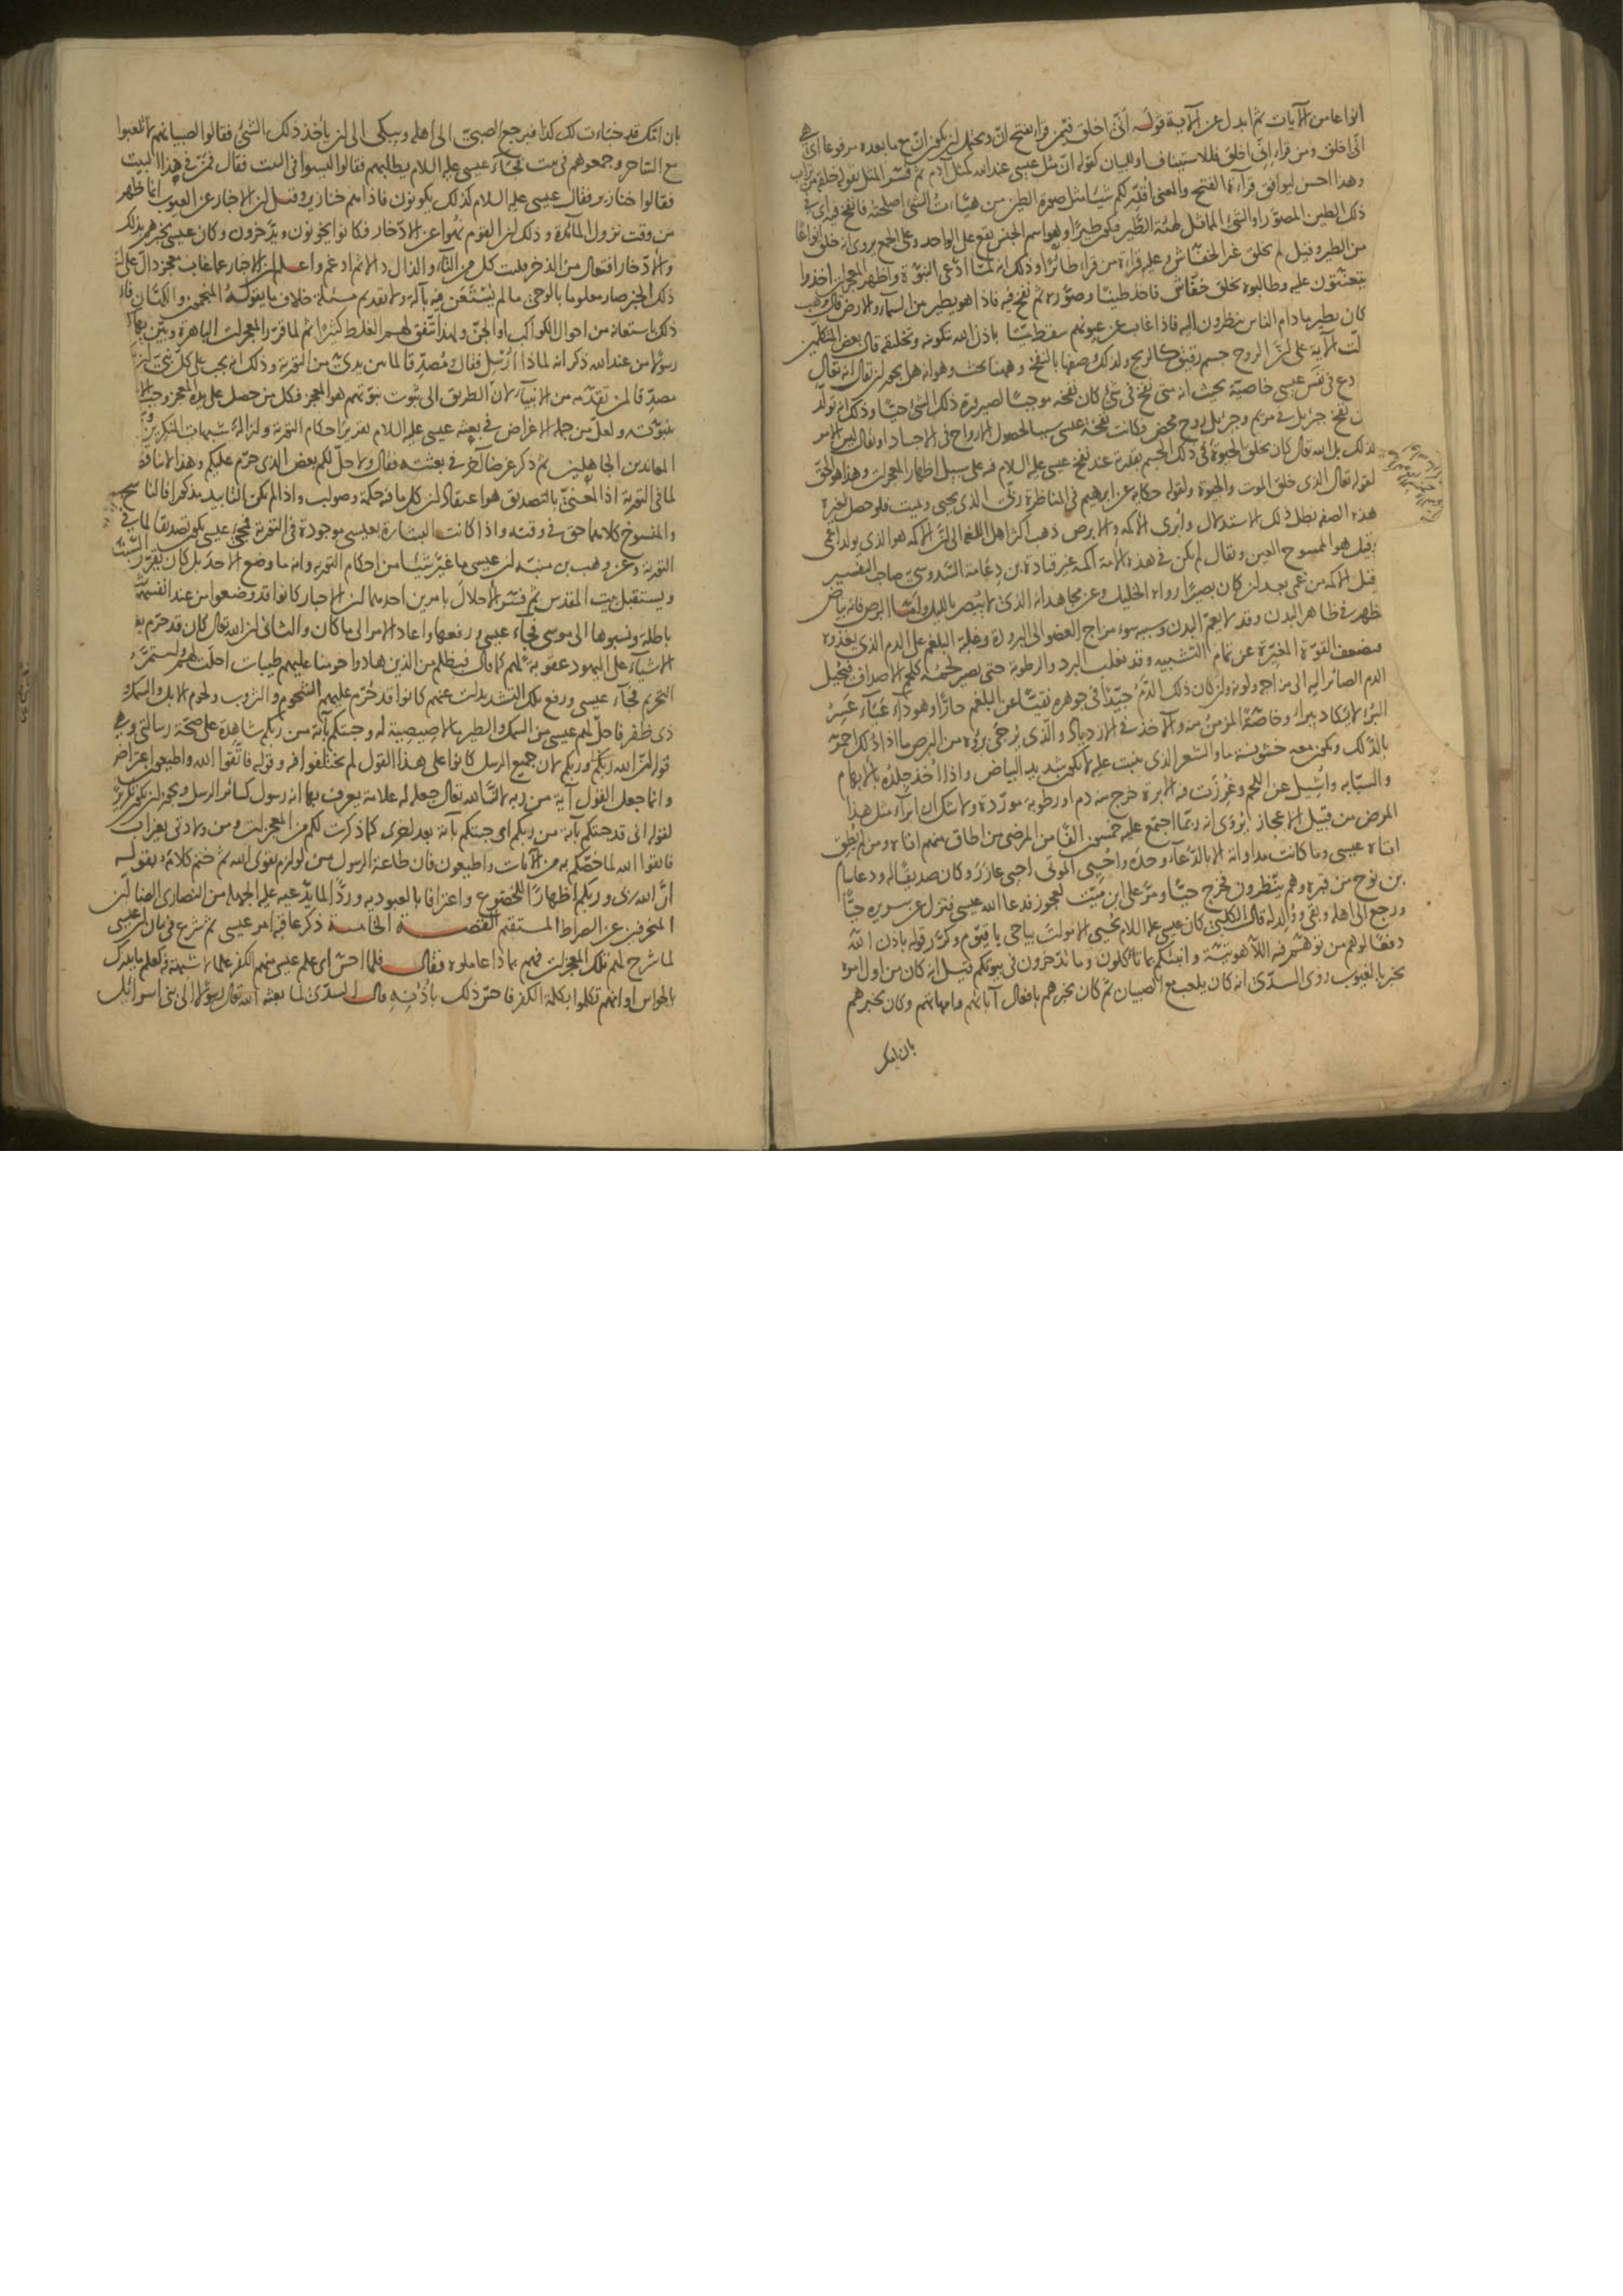 انواعا من الآيات ثم ابدل عن الآية قوله أنّى اخلق فيمن قرأ بفتح انّ ويحتمل ان يكون انّ مع ما بعده مرفوعا اى هى
انّى اخلق ومن قراء إنّى اخلق فللاستيناف او للبيان كقوله ان مثل عيسى عند الله كمثل آدم ثم فسّر المثل بقوله خلقه من تراب
وهذا احسن ليوافق قرآءة الفتح والمعنى اقدّر لكم شيئا مثل صورة الطير من هيّاءت الشئ اصلحته فانفخ فيه اى فى
ذلك الطين المصوّر او الشئ المماثل لهيئة الطّير فيكون طيرًا وهو اسم الجنس يقع على الواحد وعلى الجمع يروى انه خلق انواعًا
من الطير وقيل لم يخلق غير الخفّاش وعليه قراءة من قراء طائرًا وذلك انه لمّا ادّعى النبوّة واظهر المعجزات اخذوا
يتعنّتون عليه وطالبوه بخلق خفّاش فاخذ طينًا وصوّره ثم نفخ فيه فاذا هو يطير من السمآء والارض قال وهب
كان يطير ما دام الناس ينظرون اليه فاذا غاب عن عيونهم سقط ميّتا باذن الله بتكوينه وتخليقه قال بعض المتكلمين
لّت الآية على انّ الروح جسم رقيق كالريح ولذلك وصفها بالنفخ وههنا بحث وهو انه هل يجوز ان يقال انه تعالى
دع فى نفس عيسى خاصيّة بحيث انه متى نفخ فى شئ كان نفخه موجبًا لصيرورة ذلك الشئ حيّا وذلك انه تولّد
ن نفخ جبرئيل فى مريم وجبرئيل روح محض فكانت نفخة عيسى سببا لحصول الارواح فى الاجساد او يقال ليس الامر
لذلك بل الله تعالى كان يخلق الحيوة فى ذلك الجسم بقدرته عند نفخ عيسى عليه السلام فيه على سبيل اظهار المعجزات وهذا هو الحق
لقوله تعالى الذى خلق الموت والحيوة ولقوله حكاية عن ابرهيم فى المناظرة ربّى الذى يحيى ويميت فلو حصل لغيره
هذه الصفة بطل ذلك الاستدلال وأبرى الاكمه والابرص ذهب اكثر اهل اللغة الى انّ الاكمه هو الذى يولد اعمى
وقيل هو الممسوح العين ويقال لم يكن فى هذه الامة اكمه غير قتادة بن دعامة السّدوسىّ صاحب التفسير
قيل الاكمه من عمى بعد ان كان بصيرًا رواه الخليل وعن مجاهد انه الذى لا يُبْصر بالليل وامّا البرص فانه بياض
ظهر فى ظاهر البدن وقد لا يعمّ البدن وسببه سوء مزاج العضو الى البرودة وغلبة البلغم على الدم الذى يغذوه
فيضعف القوّة المغيّرة عن تمام التشبيه وقد يغلب البرد والرطوبة حتى يصير لحمه كلحم الاصداف فيحيل
الدم الصائر اليه الى مزاجه ولونه وان كان ذلك الدّم جيّدًا فى جوهره نقيًّا عن البلغم حارًّا وهو دآء عَيَآء عَسِرُ
البُرْء لا يكاد يبرأ وخاصّةً المزمن منه والآخذ فى الازدياد والّذى يُرجى بُرؤه من البرص ما اذا دُلك احمرّ
بالدّلك ويكون معه خشونة ما والشعر الذى ينبت عليه لا يكون شديد البياض واذا أخذ جلده بالابهام
والسبّابه واشيل عن اللحم وغُرزت فيه الابرة خرج منه دم او رطوبة مورّدة ولا شك ان ابرآء مثل هذا
المرض من قبيل الاعجاز يُروى انه ربّما اجتمع عليه خمسون الفًا من المرضى من اطاق منهم اتاه ومن لم يُطق
اتاه عيسى وما كانت مداواته الا بالدّعآء وحدَه واحيى الموتى احيى عازَر وكان صديقًا له ودعا سام
بن نوح من قبره وهم ينظرون فخرج حيًّا ومرّ على ابن ميّت لعجوز فدعا الله عيسى فنزل عن سريره حيًّا
ورجع الى اهله وبقى ووُلد له قال الكلبىّ كان عيسى عليه السلام يُحيى الاموات بيا حىّ يا قيّوم وكرّر قوله باذن الله
دفعًا لوهم من توهّم فيه اللّاهوتيّة وانبّئكم بما تأكلون وما تدّخرون فى بيوتكم قيل انه كان من اول امره
يخبر بالغيوب روى السدّى انه كان يلعب مع الصبيان ثم كان يخبرهم بافعال آبائهم وامهاتهم وكان يخبرهم
بان امك
بان امّك قد خبّأت لك كذا فيرجع الصبىّ الى اهله ويبكى الى ان يأخذ ذلك الشئ فقالوا لصبيانهم لا تلعبوا
مع الساحر وجمعوهم فى بيت فجآء عيسى عليه السلام يطلبهم فقالوا ليسوا فى البيت فقال فمن فى هذا البيت
فقالوا خنازير فقال عيسى عليه السلام كذلك يكونون فاذا هم خنازير وقيل ان الاخبار عن الغيوب انما ظهر
من وقت نزول المآئدة وذلك ان القوم نُهوا عن الادّخار فكانوا يخونون ويدّخرون وكان عيسى يخبرهم بذلك
والادّخار افتعال من الذخر قلبت كل من التّاء والذال دالا ثم ادغم واعلم ان الاخبار عما غاب معجز دالّ على انّ
ذلك الخبر صار معلوما بالوحى ما لم يُسْتَعَن فيه بآلة ولا تقديم مسئلة خلاف ما يقوله المنجّمون والكهّان فان
ذلك باستعانة من احوال الكواكب او الجنّ ولهذا يتّفق لهم الغلط كثيرًا ثم لما قرّر المعجزات الباهرة وبيّن بها كونه
رسولا من عند الله ذكر انه لماذا أرسل فقال ومُصدّقًا لما بين يدىّ من التورية وذلك انه يجب على كلّ نبىّ ان يكون
مصدّقا لمن تقدّمه من الانبيآء لانّ الطريق الى ثبوت نبوّتهم هو المعجز فكل من حصل على يده المعجز وجب الاعتراف
بنبوّته ولعلّ من جملة الاغراض فى بعثة عيسى عليه السلام تقرير احكام التورية وازالة شبهات المنكرين و
المعاندين الجاهلين ثم ذكر غرضا آخر فى بعثته فقال ولاحلّ لكم بعض الذى حرّم عليكم وهذا لا يناقض
لما فى التورية اذ المعنىّ بالتصديق هو اعتقاد ان كل ما فيه حكمة وصواب واذا لم يكن التابيد مذكورا فالناسخ
والمنسوخ كلاهما حق فى وقته واذا كانت البشارة بعيسى موجودة فى التورية فمجئ عيسى يكون تصديقا لما فى
التورية وعن وهب بن منبّه ان عيسى ما غيّر شيئًا من احكام التورية وانه ما وضع الاحد بل كان يقرّر السّبت
ويستقبل بيت المقدس ثم فسّر الاحلال بامرين احدهما ان الاحبار كانوا قد وضعوا من عند انفسهم شرائع
باطلة ونسبوها الى موسى فجآء عيسى ورفعها واعاد الامر الى ما كان والثانى ان الله تعالى كان قد حرّم بعض
الاشيآء على اليهود عقوبة لهم كما قال فبظلم من الذين هادوا حرّمنا عليهم طيبات احلّت لهم واستمرّ
التحريم فجآء عيسى ورفع تلك التشديدات عنهم كانوا قد حُرّم عليهم الشحوم والثروب ولحوم الابل والسمك وكل
ذى ظفر فاحلّ لهم عيسى من السمك والطير ما لا صيصية له وجئتكم بآية من ربكم شاهدة على صحّة رسالتى وهى
قوله انّ الله ربّى وربّكم لان جميع الرسل كانوا على هذا القول لم يختلفوا فيه وقوله فاتّقوا الله واطيعون اعتراض
وانما جعل القول آية من ربّه لانّ الله تعالى جعله له علامة يعرف بها انه رسول كسائر الرسل ويجوز ان يكون تكريرًا
لقوله انى قد جئتكم بآية من ربكم اى جئتكم بآية بعد اخرى كما ذكرت لكم من المعجزات ومن ولادتى بغير اب
فاتقوا الله لما خصّكم به من الآيات واطيعون فان طاعة الرسول من لوازم تقوى الله ثم ختم كلامه بقوله
انّ الله ربّى وربكم اظهارًا للخضوع واعترافا بالعبودية وردًّا لما يدّعيه عليه الجهلة من النصارى الضالّين
المنحرفين عن الصراط المستقيم القصة الخامسة ذكر عاقبة امر عيسى ثم شرع فى بيان ان عيسى
لما شرح لهم تلك المعجزات فهم بماذا عاملوه فقال فلما احسّ اى علم عيسى منهم الكفر علما لا شبهة فيه كعلم ما يدرك
بالحواس او انهم تكلموا بكلمة الكفر فاحسّ ذلك باُذُنِه قال السدّىّ لما بعثه الله تعالى رسولا الى بنى اسرائيل